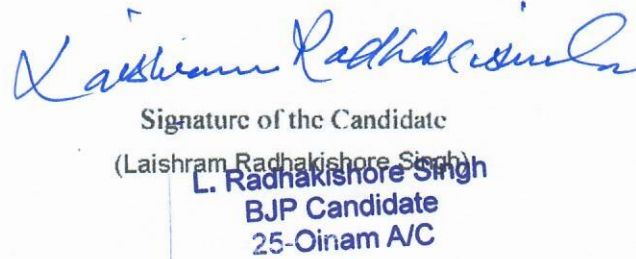 Laishram Radhakishore
Signature of the Candidate
(Laishram Radhakishore Singh)
L. Radhakishore Singh
BJP Candidate
25-Oinam A/C